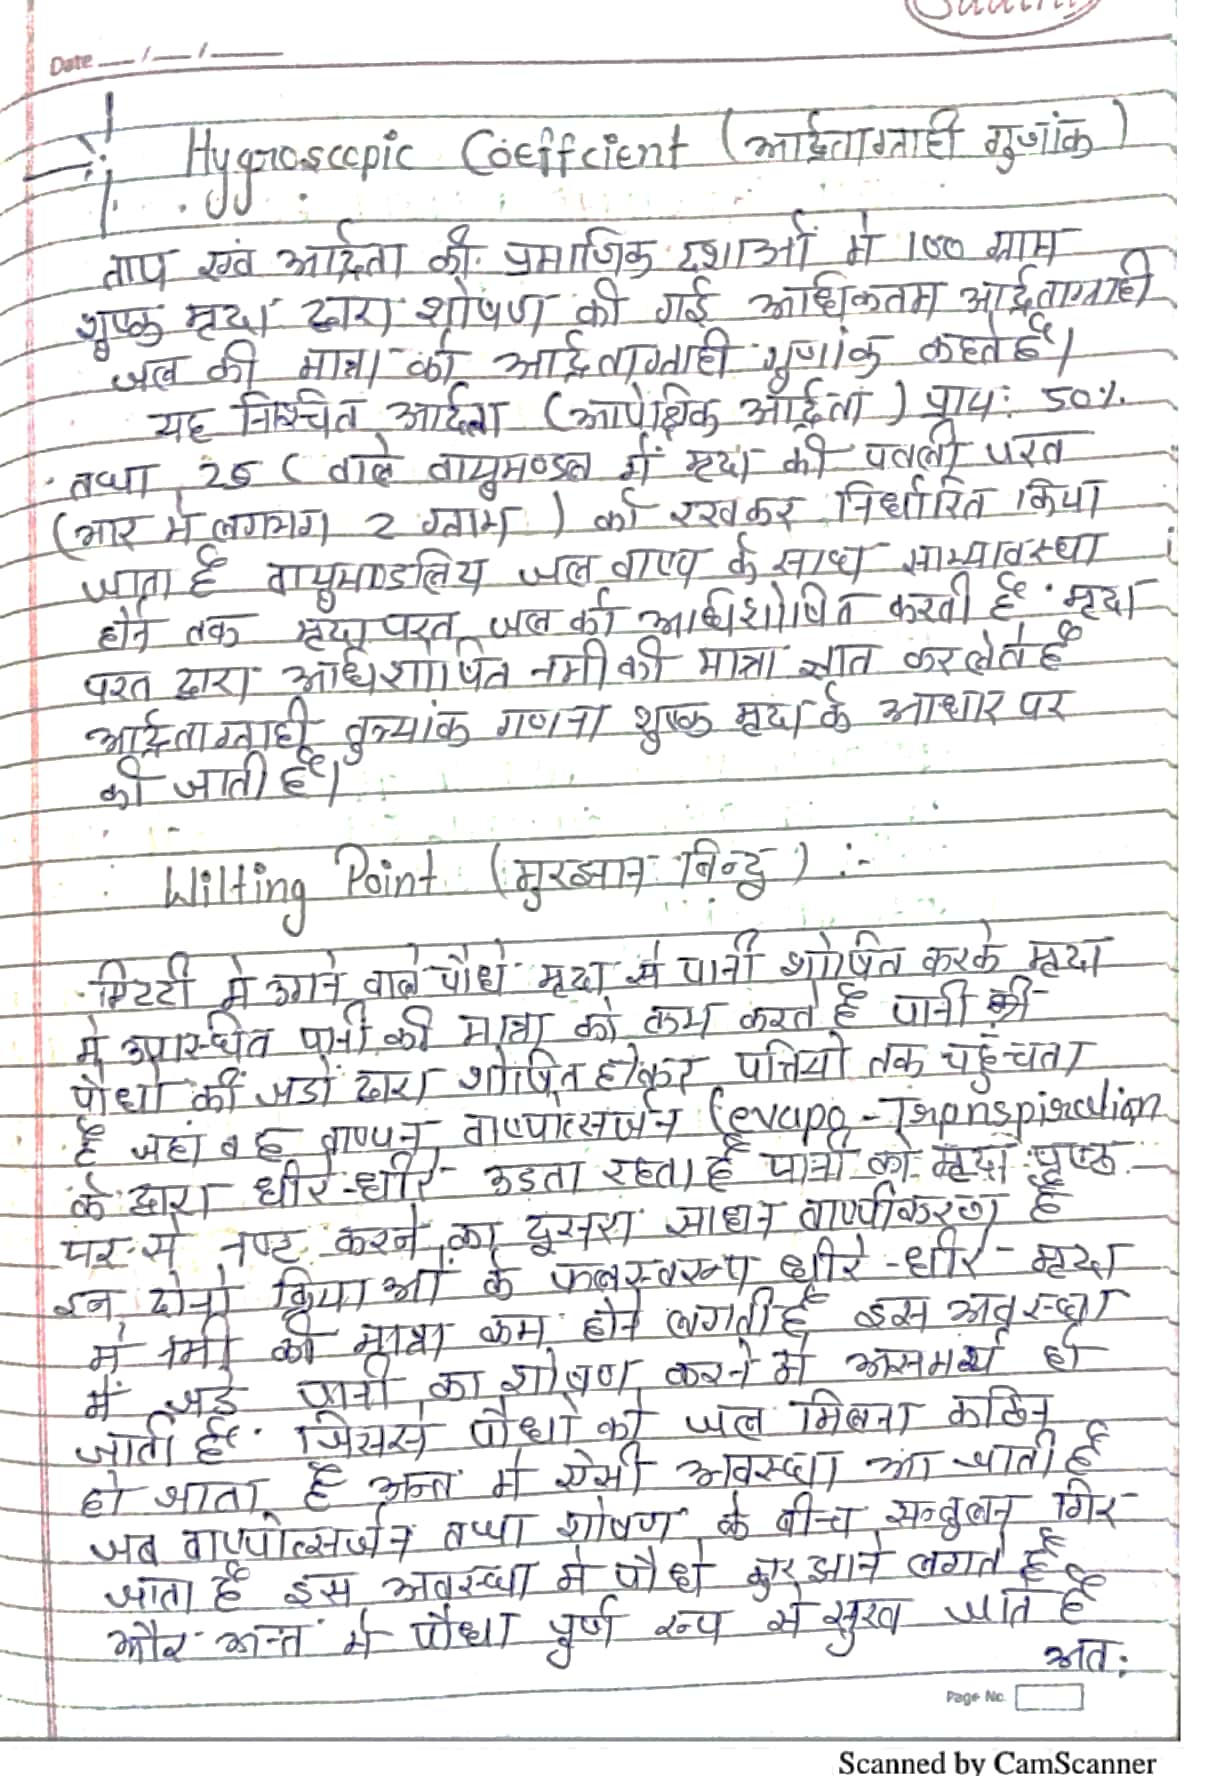 Date __/__/____
Hygroscopic Coefficient (आर्द्रताग्राही गुणांक)
ताप एवं आर्द्रता की प्रमाणिक दशाओं मे 100 ग्राम
शुष्क मृदा द्वारा शोषण की गई अधिकतम आर्द्रताग्राही
जल की मात्रा को आर्द्रताग्राही गुणांक कहते है।
यह निश्चित आर्द्रता (आपेक्षिक आर्द्रता) प्राय: 50%
तथा 25 C वाले वायुमण्डल में मृदा की पतली परत
(भार मे लगभग 2 ग्राम) को रखकर निर्धारित किया
जाता है वायुमण्डलिय जल वाष्प के साथ साम्यावस्था
होने तक मृदा परत जल को अधिशोषित करती है मृदा
परत द्वारा अधिशोषित नमी की मात्रा ज्ञात कर लेते है
आर्द्रताग्राही गणना शुष्क मृदा के आधार पर
की जाती है।
Wilting Point (मुरझान बिन्दु) :-
मिटटी मे उगने वाले पौधे मृदा से पानी शोषित करके मृदा
मे उपस्थित पानी की मात्रा को कम करते है पानी की
पोधो की जडो द्वारा शोषित होकर पत्तियो तक पहुँचता
है जहां वह वाष्पन वाष्पोत्सर्जन (evapo-Transpiration
के द्वारा धीरे-धीरे उडता रहता है पानी को मृदा पृष्ठ
पर से नष्ट करने का दूसरा साधन वाष्पीकरण है
इन दोनो क्रियाओं के फलस्वरूप धीरे-धीरे मृदा
मे नमी की मात्रा कम होने लगती है इस अवस्था
में जडे पानी का शोषण करने में असमर्थ हो
जाती है जिससे पौधो को जल मिलना कठिन
हो जाता है अन्त मे ऐसी अवस्था आ जाती है
जब वाष्पोत्सर्जन तथा शोषण के बीच सन्तुलन गिर
जाता है इस अवस्था मे पौधे लगते है
और अन्त मे पौधा पुर्ण रूप से सुख जाते है
अत:
Page No.
Scanned by CamScanner